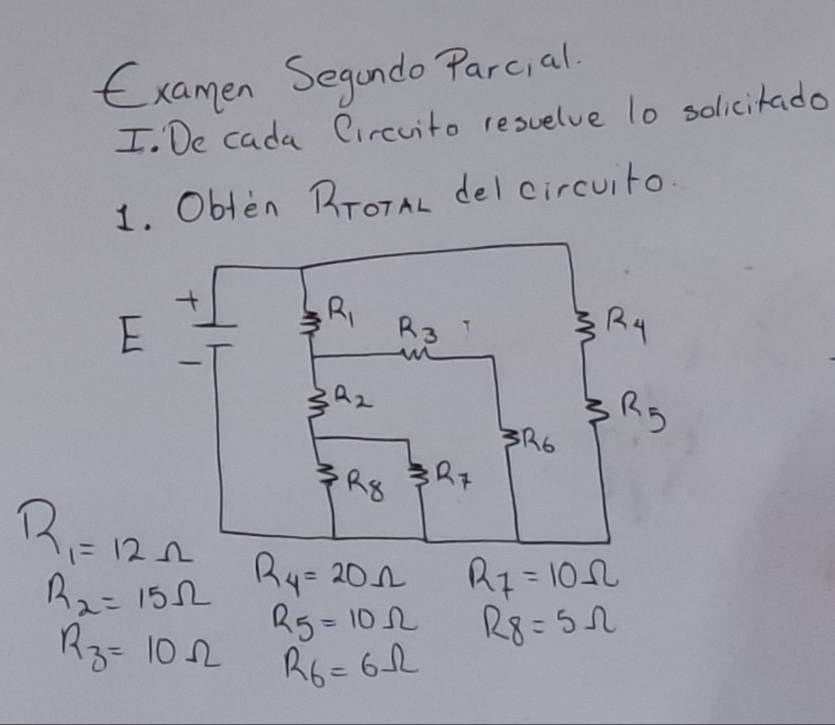 Examen Segundo Parcial.
I. De cada Circuito resuelve lo solicitado
1. Obtén RTOTAL del circuito.
E
+
-
R1
R3
R4
R2
R5
R6
R8
R7
R1 = 12 Ω
R2 = 15 Ω
R3 = 10 Ω
R4 = 20 Ω
R5 = 10 Ω
R6 = 6 Ω
R7 = 10 Ω
R8 = 5 Ω